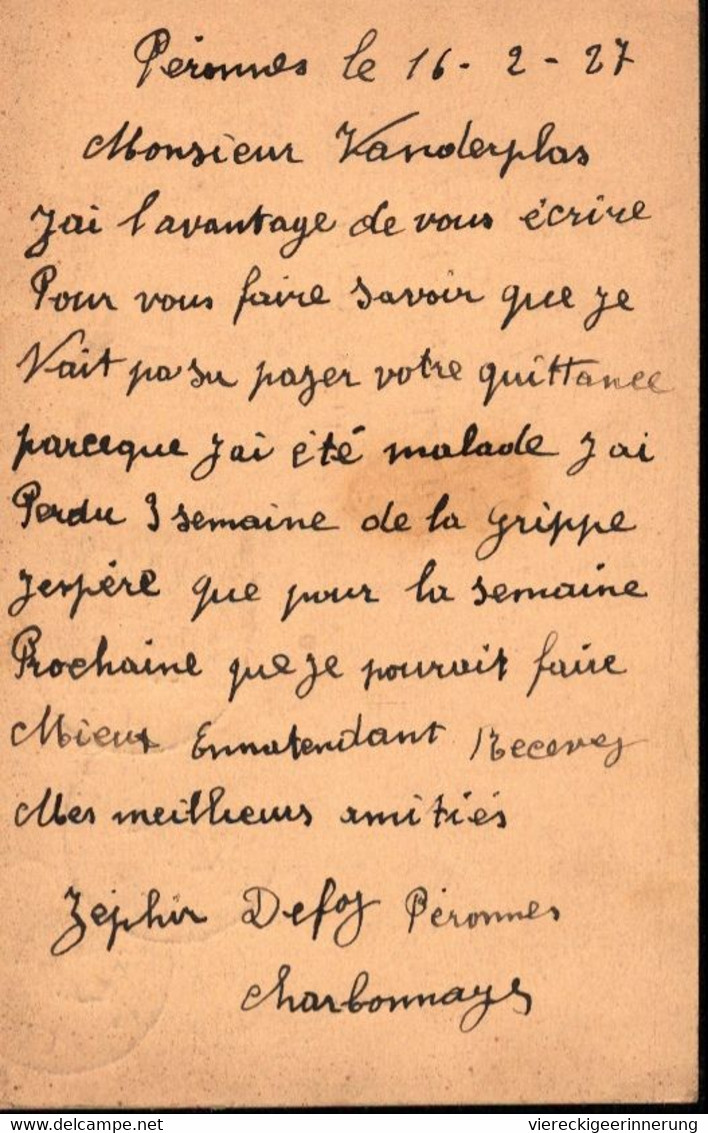 Péronnes le 16-2-27
Monsieur Vanderplas
J'ai l'avantage de vous écrire
Pour vous faire savoir que je
Nait pa su pazer votre quittance
parceque jai été malade jai
Perdu 3 semaine de la grippe
Jespére que pour la semaine
Prochaine que je pourait faire
Mieux Ennatendant Recevez
Mes meilheurs amitiés
Zéphir Defoz Péronnes
Charbonnages
Delcampe.net
viereckigeerinnerung